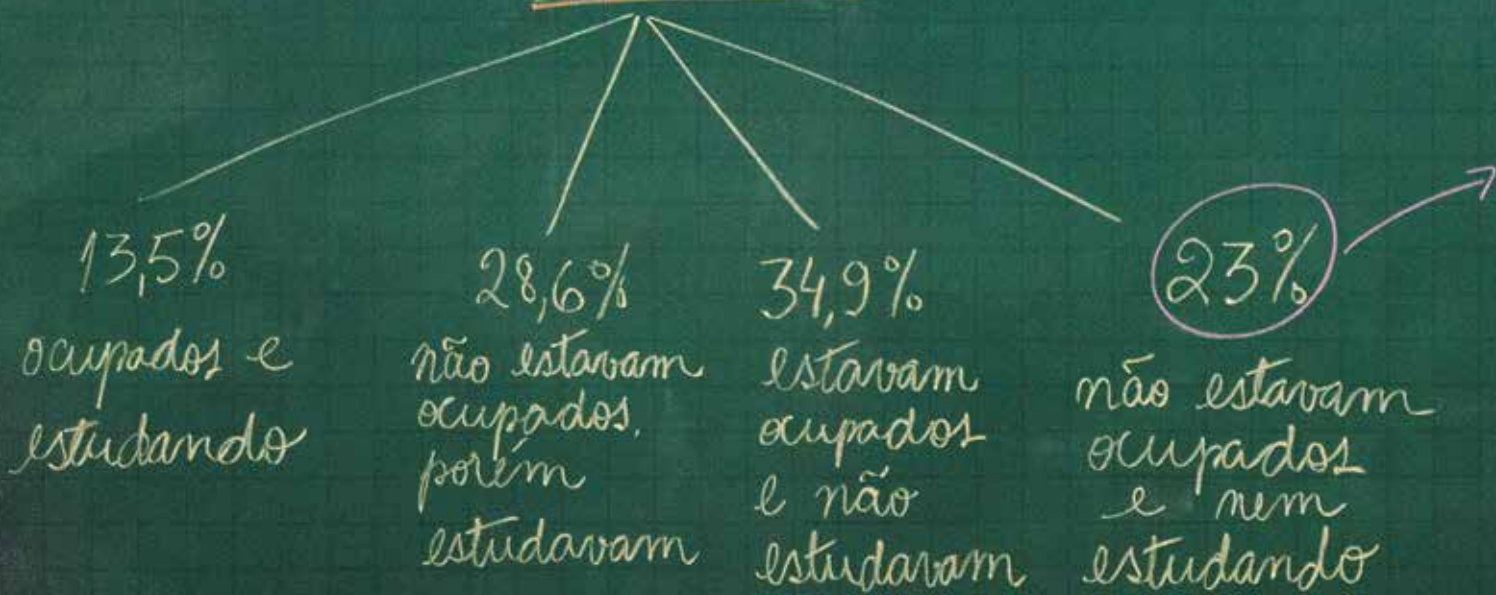 13,5%
ocupados e
estudando
28,6%
não estavam
ocupados,
porém
estudavam
34,9%
estavam
ocupados
e não
estudavam
23%
não estavam
ocupados
e nem
estudando